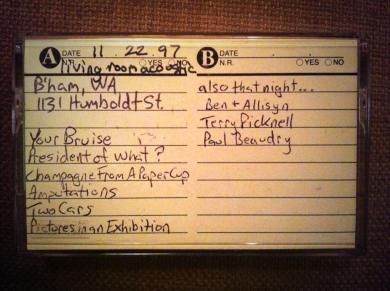 A DATE 11 . 22 . 97
N.R. YES NO
living room acoustic
B'ham, WA
1131 Humboldt St.
Your Bruise
President of What?
Champagne From A Paper Cup
Amputations
Two Cars
Pictures in an Exhibition
B DATE . .
N.R. YES NO
also that night...
Ben + Allisyn
Terry Picknell
Paul Beaudry